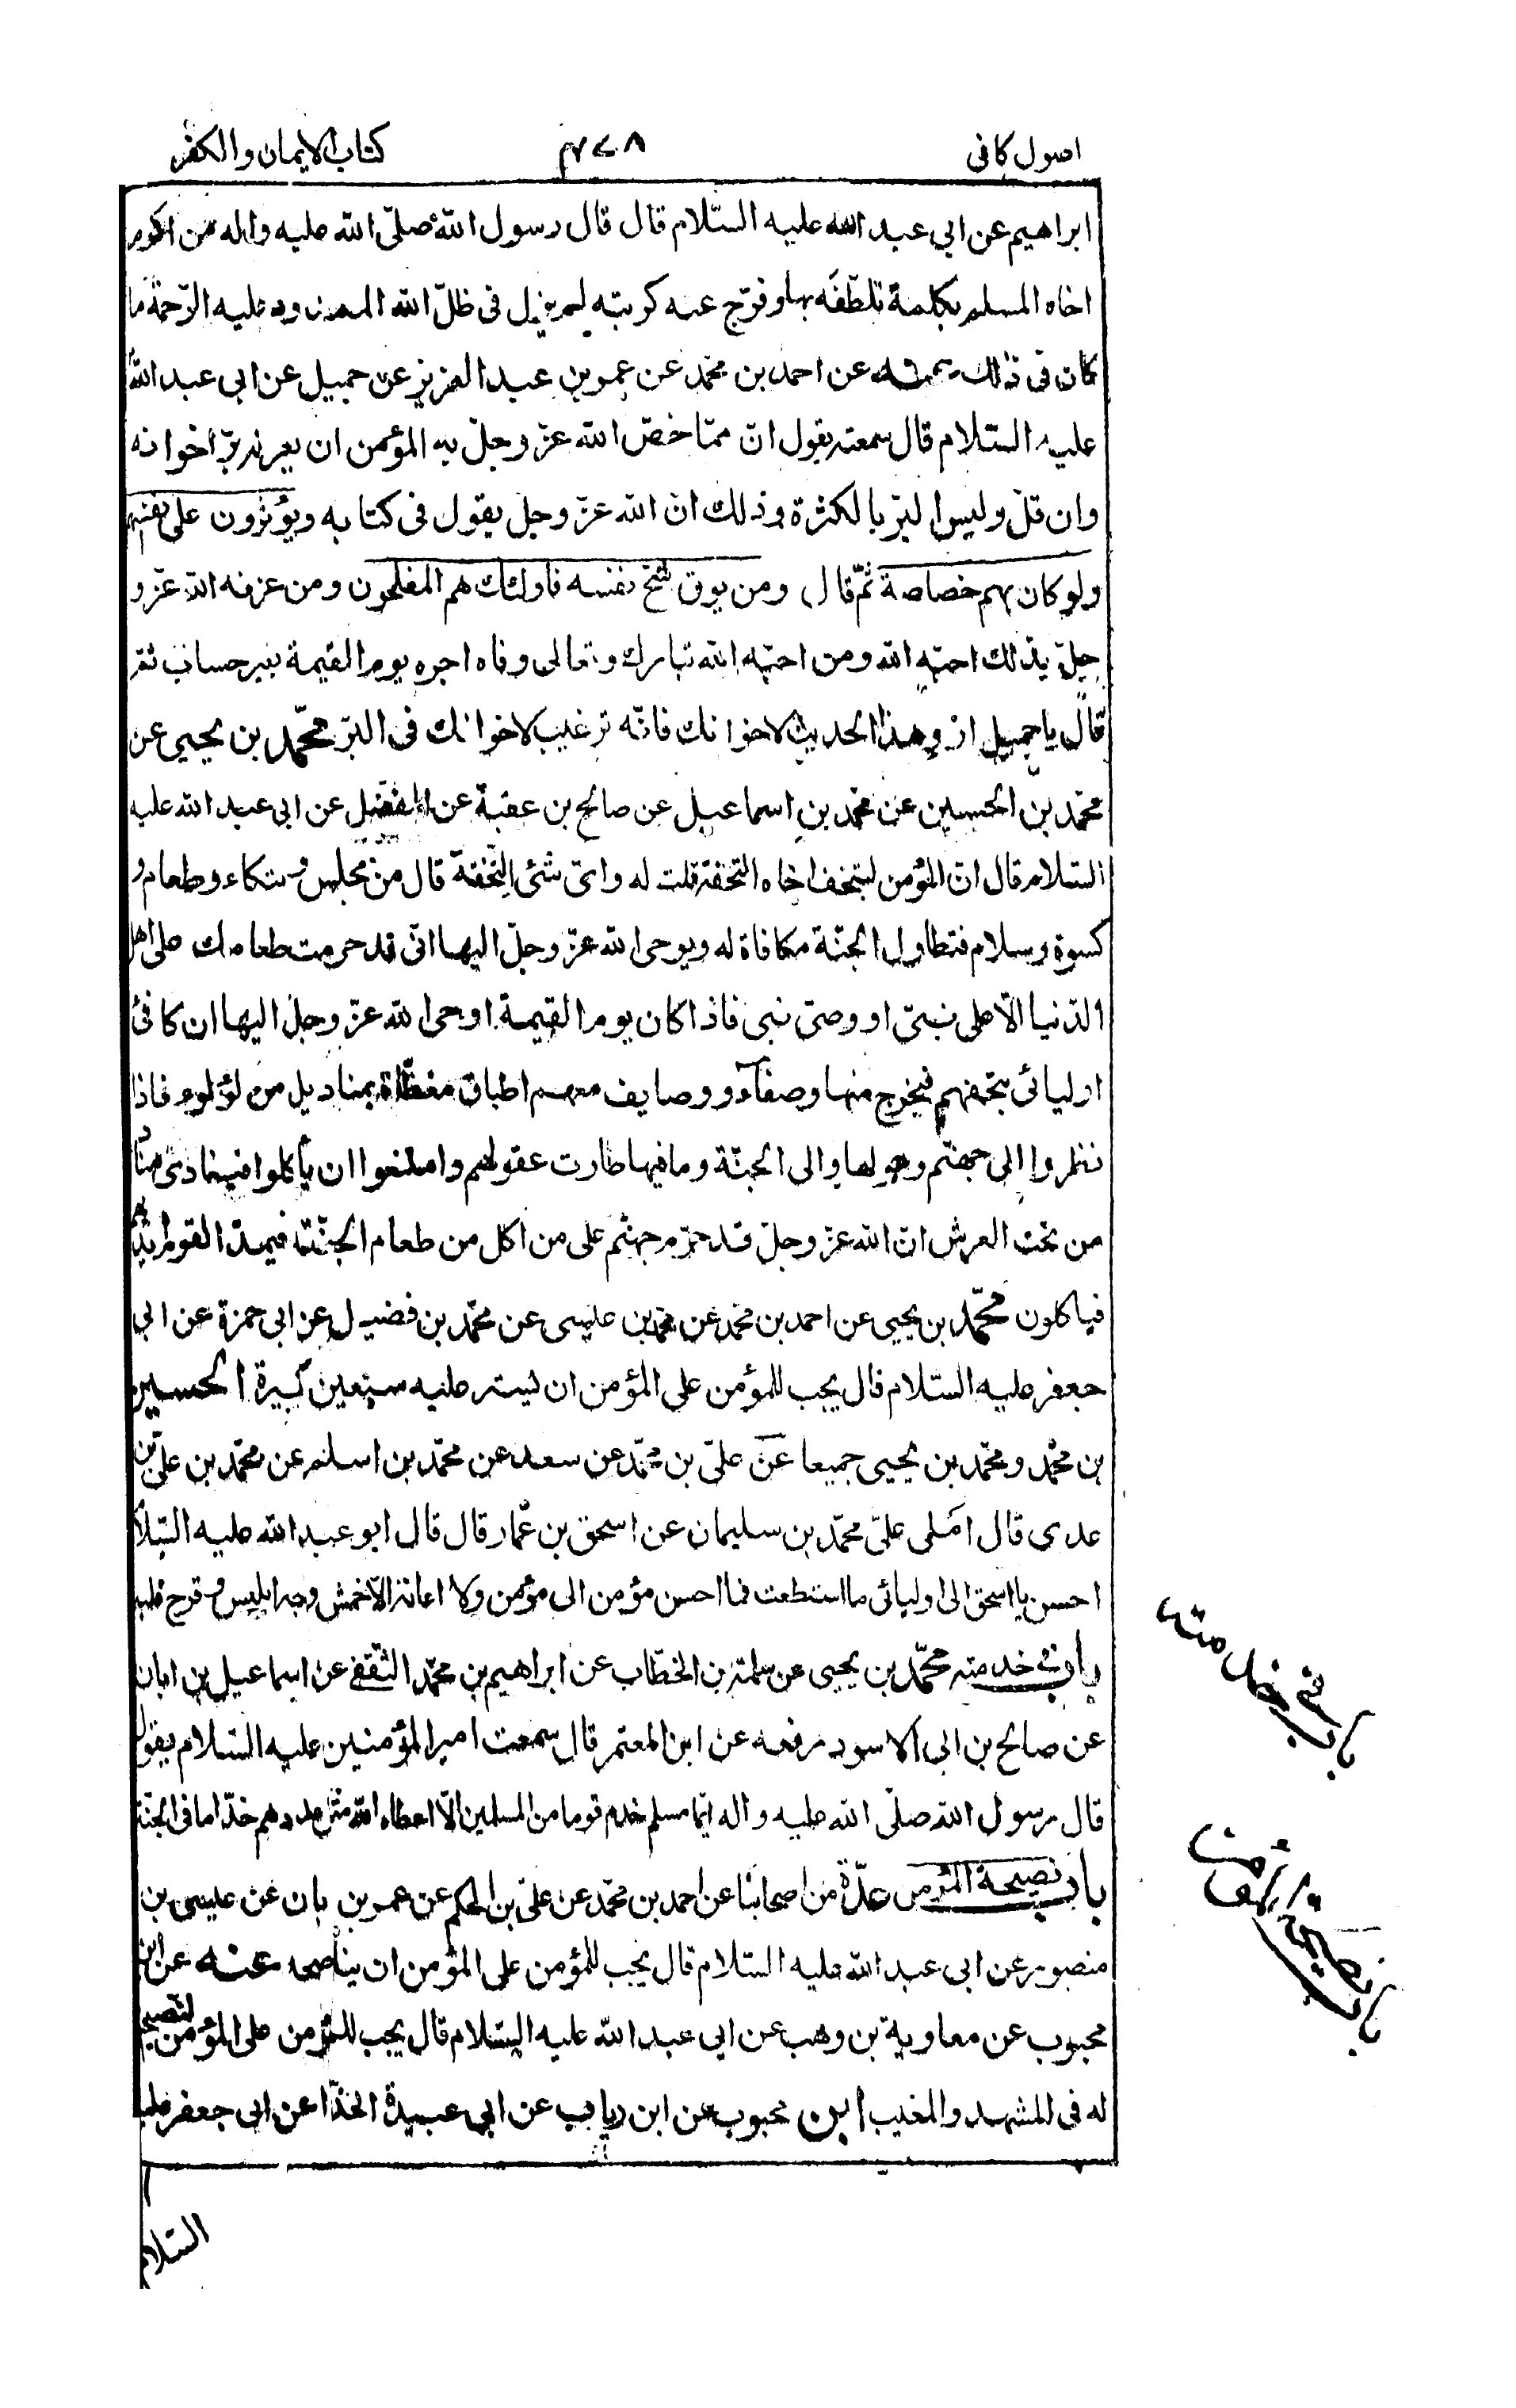 اصول كافى ٤٧٨ كتاب الايمان والكفر
ابراهيم عن ابي عبد الله عليه السّلام قال قال رسول اللهّ صلّى اللهّ عليه واله من اكرم
اخاه المسلم بكلمة تلطّفه بها وفرّج عنه كربته لم يزل فى ظلّ اللهّ الممدود عليه الرّحمة ما
كان فى ذلك عنه عن احمد بن محمّد عن عمر بن عبد العزيز عن جميل عن ابي عبد اللهّ
عليه السّلام قال سمعته يقول انّ ممّا خصّ اللهّ عزّ وجلّ به المؤمن ان يعرفه برّ اخوانه
وان قلّ وليس البرّ بالكثرة وذلك انّ اللهّ عزّ وجلّ يقول فى كتابه ويؤثرون على انفسهم
ولو كان بهم خصاصة ثمّ قال ومن يوق شحّ نفسه فاولئك هم المفلحون ومن عرفه اللهّ عزّ و
جلّ بذلك احبّه اللهّ ومن احبّه اللهّ تبارك وتعالى وفاه اجره يوم القيمة بغير حساب ثمّ
قال يا جميل ارو هذا الحديث لاخوانك فانّه ترغيب لاخوانك فى البرّ محمّد بن يحيى عن
محمّد بن الحسين عن محمّد بن اسماعيل عن صالح بن عقبة عن المفضّل عن ابى عبد الله عليه
السّلام قال انّ المؤمن ليتحف اخاه التحفة قلت له واىّ شئ التّحفة قال من مجلس ومتكاء وطعام و
كسوة وسلام فتطاول الجنّة مكافاة له ويوحى اللهّ عزّ وجلّ اليها انّى قد حرمت طعامك على اهل
الدّنيا الّا على نبىّ او وصىّ نبى فاذا كان يوم القيمة اوحى اللهّ عزّ وجلّ اليها ان كافئ
اوليائى بتحفهم فيخرج منها وصفآء ووصايف معهم اطباق مغطّاة بمناديل من لؤلوء فاذا
نظروا الى جهنّم وهولها والى الجنّة وما فيها طارت عقولهم وامتنعوا ان يأكلوا فينادى مناد
من تحت العرش انّ الله عزّ وجلّ قد حرّم جهنّم على من اكل من طعام الجنّته فيمدّ القوم ايديهم
فياكلون محمّد بن يحيى عن احمد بن محمّد عن محمّد بن عليسى عن محمّد بن فضيل عن ابى حمزة عن ابى
جعفر عليه السّلام قال يجب للمؤمن على المؤمن ان يستر عليه سبعين كبيرة الحسين
بن محمّد ومحمّد بن يحيى جميعا عن علىّ بن محمّد عن سعد عن محمّد بن اسلم عن محمّد بن علىّ بن
عدى قال املى علىّ محمّد بن سليمان عن اسحق بن عمّار قال قال ابو عبد اللهّ عليه السّلام
احسن يا اسحق الى اوليائى ما استطعت فما احسن مؤمن الى مؤمن ولا اعانه الّا خمش وجه ابليس وقرح قلبه
باب فى خدمته محمّد بن يحيى عن سلمة بن الخطّاب عن ابراهيم بن محمّد الثّقفى عن اسماعيل بن ابان
عن صالح بن ابى الاسود رفعه عن ابى المعتمر قال سمعت امير المؤمنين عليه السّلام يقول
قال رسول اللهّ صلّى اللهّ عليه واله ايّما مسلم خدم قوما من المسلمين الّا اعطاه اللهّ مثل عددهم خدّاما فى الجنّة
باب نصيحة المؤمن عدّة من اصحابنا عن احمد بن محمّد عن علىّ بن الحكم عن عمر بن بان عن عليسى بن
منصور عن ابى عبد اللهّ عليه السّلام قال يجب للمؤمن على المؤمن ان يناصحه عنه عن ابن
محبوب عن معاوية بن وهب عن ابى عبد اللهّ عليه السّلام قال يجب للمؤمن على المؤمن النصيحة
له فى المشهد والمغيب ابن محبوب عن ابن رياب عن ابي عبيدة الحذّا عن ابى جعفر عليه
السّلام
باب فى خدمته
باب نصيحة المؤمن